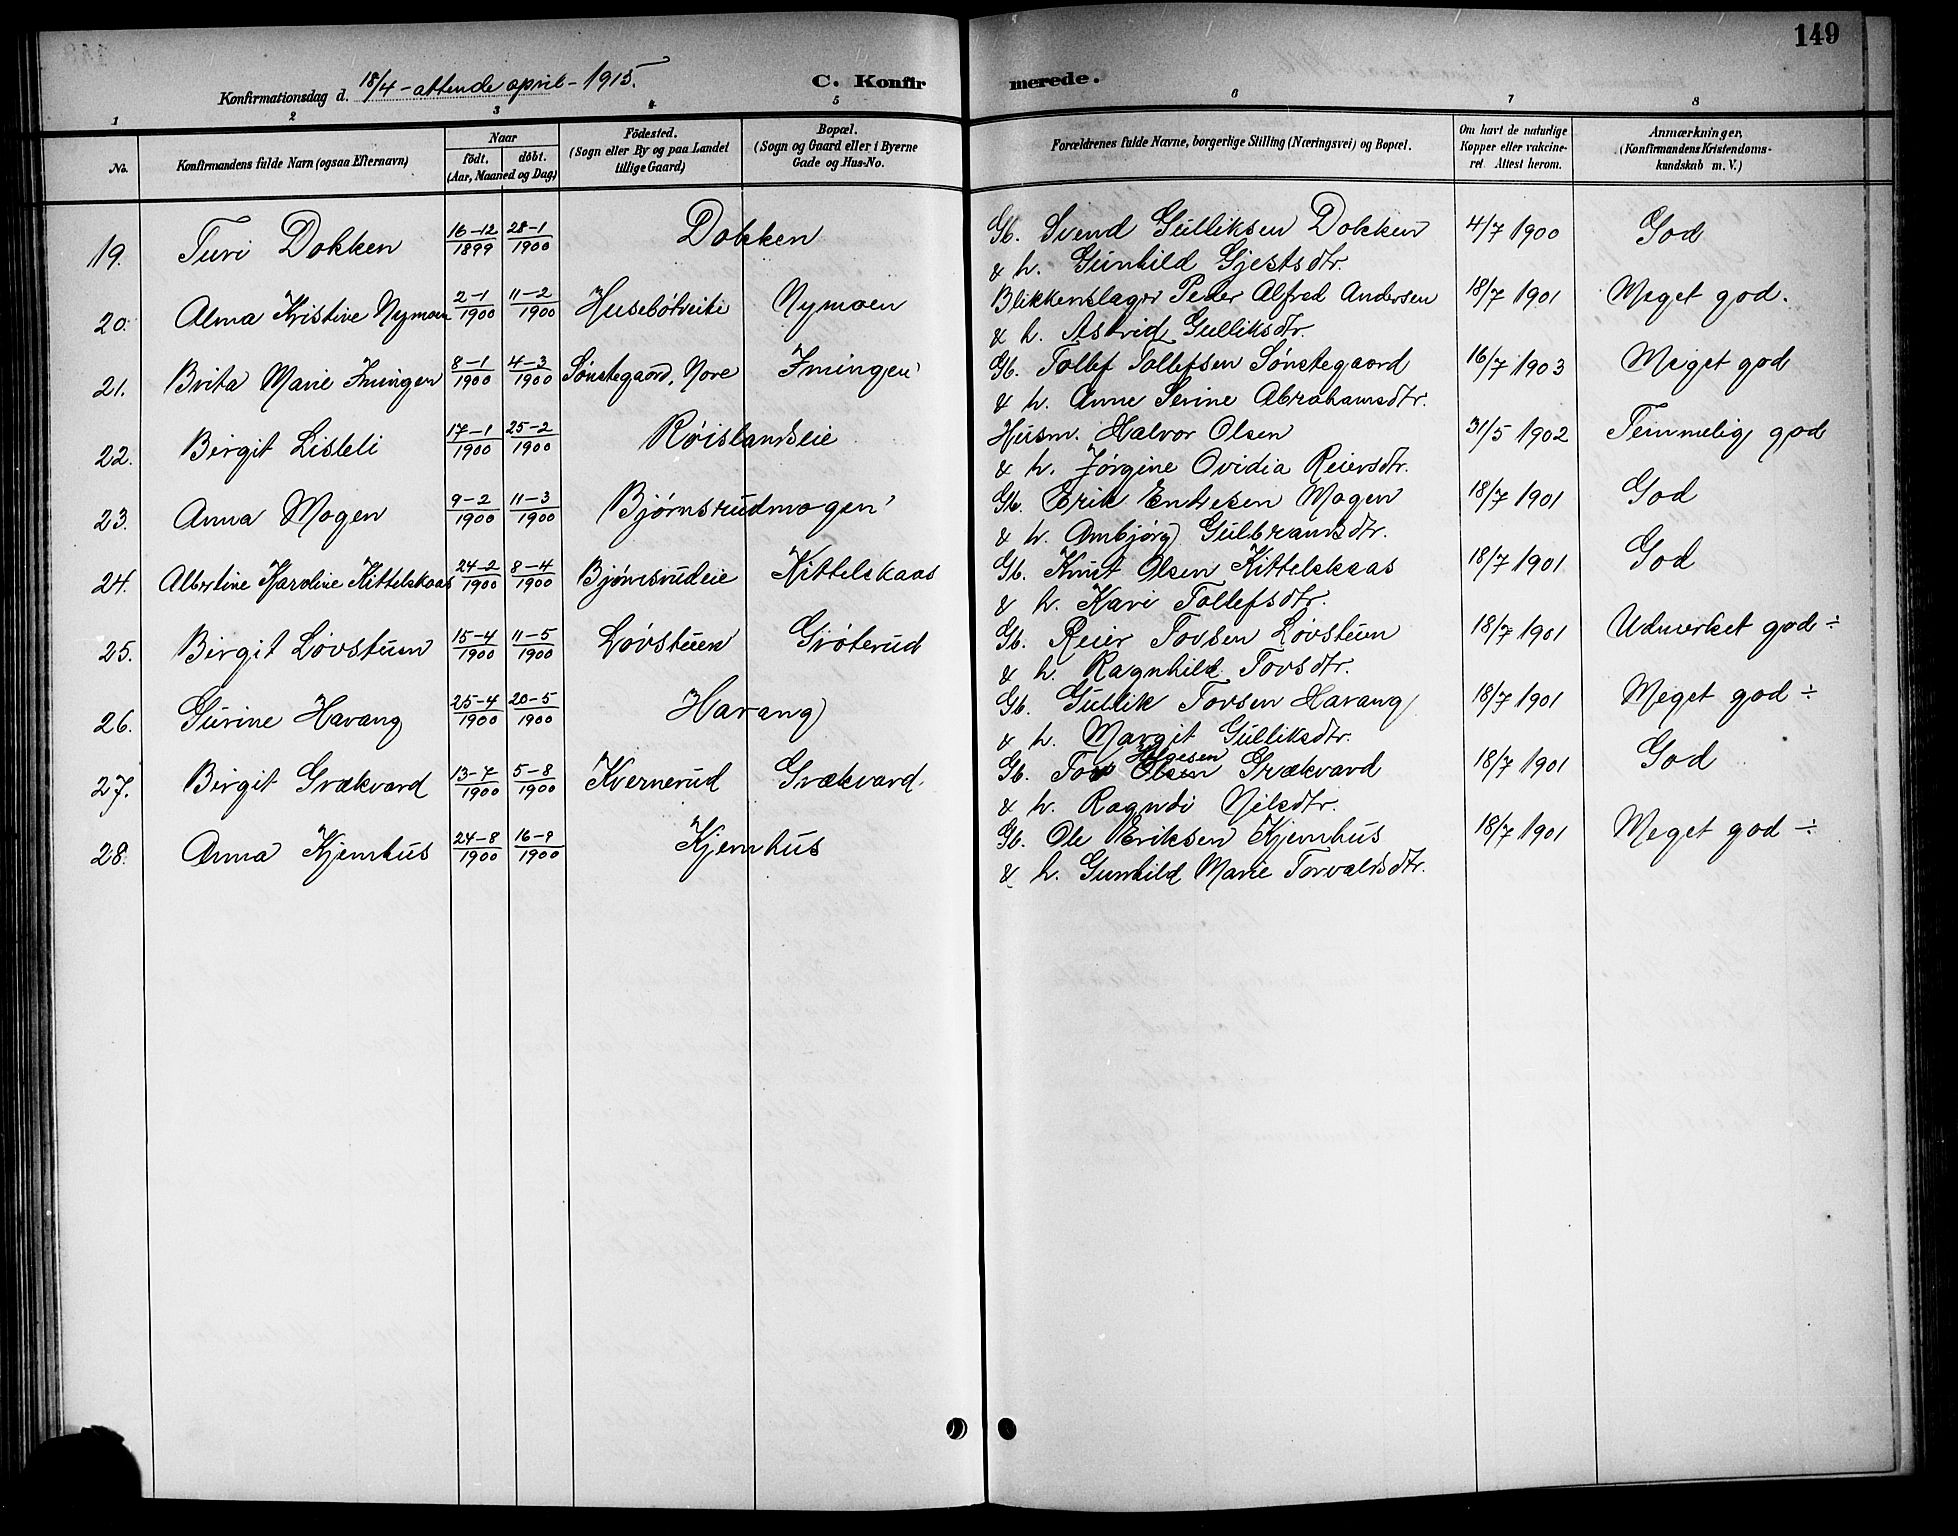 149
Konfirmationsdag d. 18/4 - attende april - 1915. C. Konfirmerede.
1 2 3 4 5 6 7 8
No. Konfirmandens fulde Navn (ogsaa Efternavn) Naar födt, döbt. (Aar, Maaned og Dag) Födested. (Sogn eller By og paa Landet tillige Gaard) Bopæl. (Sogn og Gaard eller i Byerne Gade og Hus-No. Forældrenes fulde Navne, borgerlige Stilling (Næringsvei) og Bopæl. Om havt de naturlige Kopper eller vaccineret. Attest herom. Anmærkninger, (Konfirmandens Kristendomskundskab m. V.)
19. Turi Dokken 16-12 1899 28-1 1900 Dokken Gb. Svend Gulliksen Dokken 4/7 1900 God
& h. Gunhild Gjestsdtr.
20. Alma Kristine Nymoen 2-1 1900 11-2 1900 Husebötveiti Nymoen Blikkenslager Peder Alfred Andersen 18/7 1901 Meget god.
& h. Astrid Gulliksdtr.
21. Brita Marie Imingen 8-1 1900 4-3 1900 Sønstegaard, Nore Imingen Gb. Tollef Tollefsen Sønstegaard 16/7 1903 Meget god
& h. Anne Serine Abrahamsdtr.
22. Birgit Lisleli 17-1 1900 25-2 1900 Røislandseie Husm. Halvor Olsen 31/5 1902 Temmelig god
& h. Jørgine Ovidia Reiersdtr.
23. Anna Mogen 9-2 1900 11-3 1900 Bjørnsrudmogen Gb. Erik Endresen Mogen 18/7 1901 God
& h. Ambjørg Gulbrandsdtr.
24. Albertine Karoline Kittelskaas 24-2 1900 8-4 1900 Bjørnsrudeie Kittelskaas Gb. Knut Olsen Kittelskaas 18/7 1901 God
& h. Kari Tollefsdtr.
25. Birgit Løvstuen 15-4 1900 11-5 1900 Løvstuen Grøterud Gb. Reier Tovsen Løvstuen 18/7 1901 Udmerket god ÷
& h. Ragnhild Tovsdtr.
26. Gurine Havang 25-4 1900 20-5 1900 Havang Gb. Gullik Tovsen Havang 18/7 1901 Meget god ÷
& h. Margit Gulliksdtr.
Helgesen
27. Birgit Grækvard 13-7 1900 5-8 1900 Kvernerud Grækvard. Gb. Tov Olsen Grækvard 18/7 1901 God
& h. Ragndi Nilsdtr.
28. Anna Kjemhus 24-8 1900 16-9 1900 Kjemhus Gb. Ole Eriksen Kjemhus 18/7 1901 Meget god ÷
& h. Gunhild Marie Torvaldsdtr.